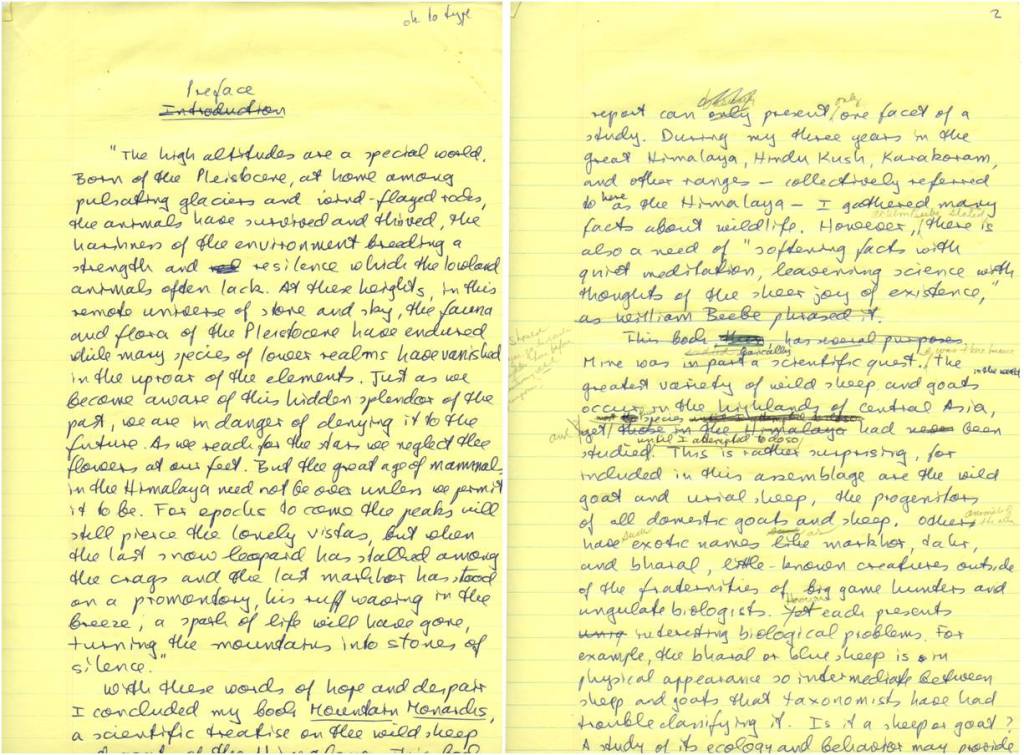 ok to type
Preface
Introduction
"The high altitudes are a special world.
Born of the Pleistocene, at home among
pulsating glaciers and wind-flayed rocks,
the animals have survived and thrived, the
harshness of the environment breeding a
strength and resilence which the lowland
animals often lack. At these heights, in this
remote universe of stone and sky, the fauna
and flora of the Pleistocene have endured
while many species of lower realms have vanished
in the uproar of the elements. Just as we
become aware of this hidden splendor of the
past, we are in danger of denying it to the
future. As we reach for the stars we neglect the
flowers at our feet. But the great age of mammals
in the Himalaya need not be over unless we permit
it to be. For epochs to come the peaks will
still pierce the lonely vistas, but when
the last snow leopard has stalked among
the crags and the last markhor has stood
on a promontory, his ruff waving in the
breeze, a spark of life will have gone,
turning the mountains into stones of
silence."
With these words of hope and despair
I concluded my book Mountain Monarchs,
a scientific treatise on the wild sheep
2
only
report can only present one facet of a
study. During my three years in the
great Himalaya, Hindu Kush, Karakoram,
and other ranges – collectively referred
to here as the Himalaya – I gathered many
facts about wildlife. However, there is
also a need of "softening facts with
quiet meditation, leavening science with
thoughts of the sheer joy of existence,"
as William Beebe phrased it.
This book has several purposes.
basically
Mine was in part a scientific quest. The
in the world
greatest variety of wild sheep and goats
occur in the highlands of central Asia,
and yet those in the Himalaya had never been
until I attempted to do so
studied. This is rather surprising, for
included in this assemblage are the wild
goat and urial sheep, the progenitors
of all domestic goats and sheep. Others
such as
have exotic names like markhor, tahr,
and bharal, little-known creatures outside
of the fraternities of big game hunters and
ungulate biologists. Yet each presents
interesting biological problems. For
example, the bharal or blue sheep is in
physical appearance so intermediate between
sheep and goats that taxonomists have had
trouble classifying it. Is it a sheep or goat?
A study of its ecology and behavior may provide